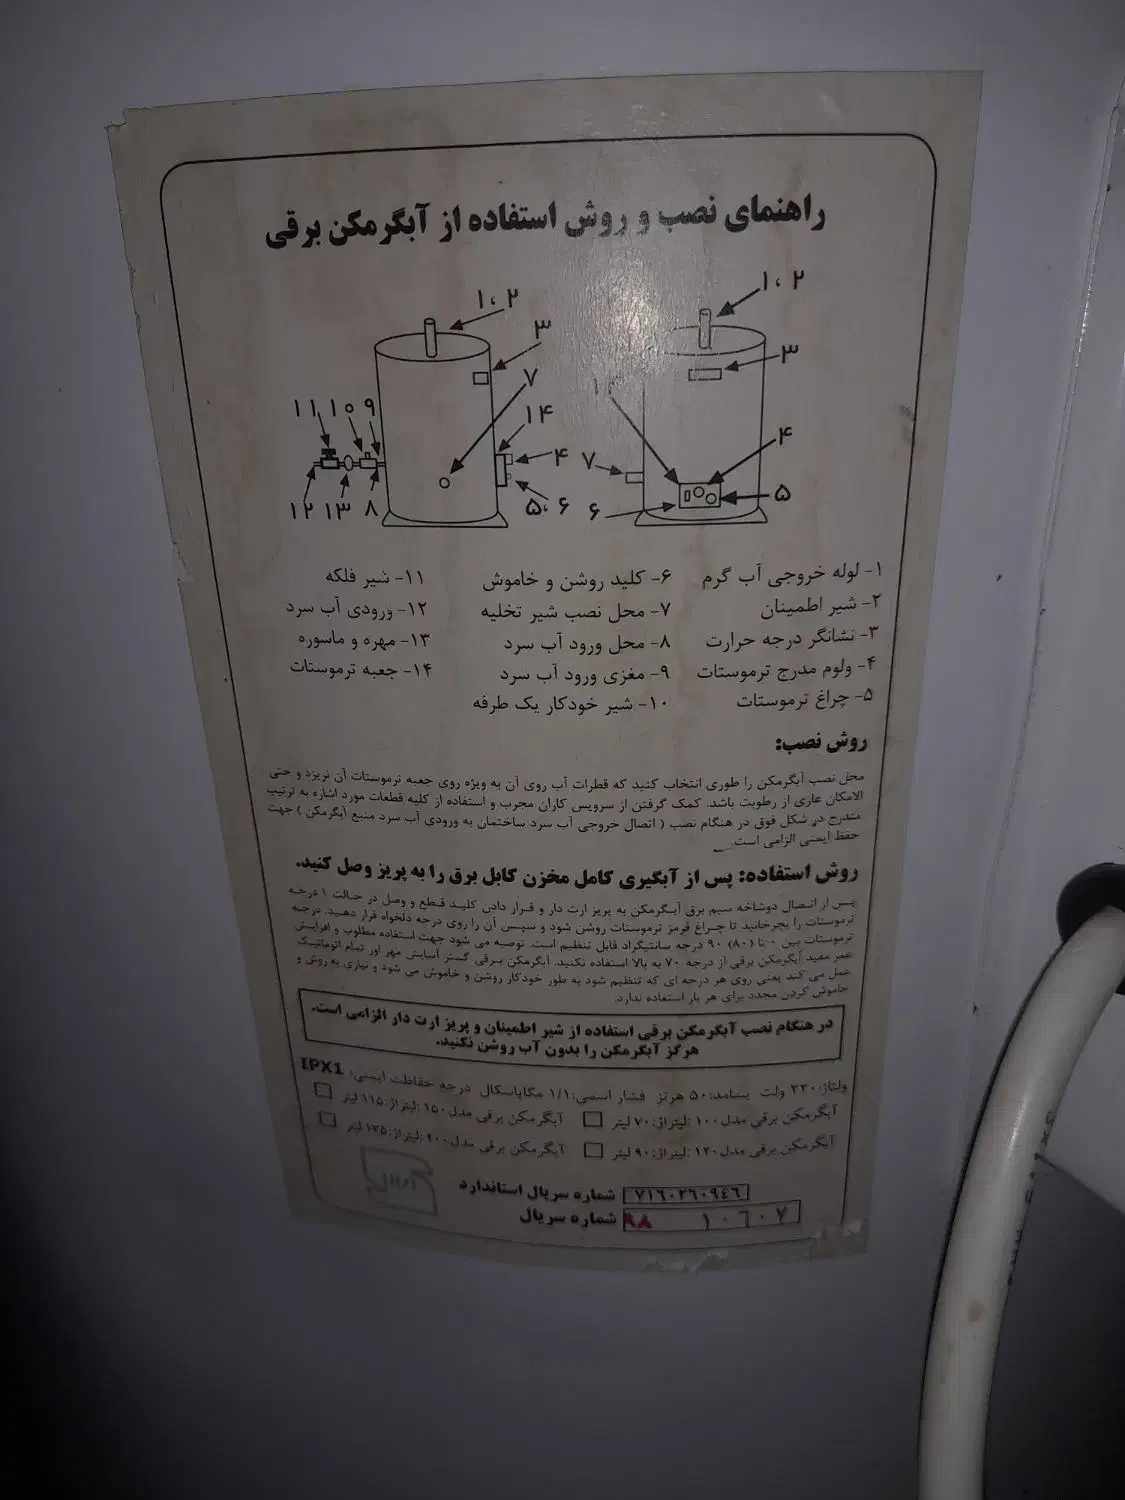 راهنمای نصب و روش استفاده از آبگرمکن برقی
۱، ۲
۱، ۲
۳
۳
۷
۱۴
۱۱ ۱۰ ۹
۴
۴
۷
۱۲ ۱۳ ۸
۵، ۶
۶
۵
۱- لوله خروجی آب گرم
۲- شیر اطمینان
۳- نشانگر درجه حرارت
۴- ولوم مدرج ترموستات
۵- چراغ ترموستات
۶- کلید روشن و خاموش
۷- محل نصب شیر تخلیه
۸- محل ورود آب سرد
۹- مغزی ورود آب سرد
۱۰- شیر خودکار یک طرفه
۱۱- شیر فلکه
۱۲- ورودی آب سرد
۱۳- مهره و ماسوره
۱۴- جعبه ترموستات
روش نصب:
محل نصب آبگرمکن را طوری انتخاب کنید که قطرات آب روی آن به ویژه روی جعبه ترموستات آن نریزد و حتی
الامکان عاری از رطوبت باشد. کمک گرفتن از سرویس کاران مجرب و استفاده از کلیه قطعات مورد اشاره به ترتیب
مندرج در شکل فوق در هنگام نصب ( اتصال خروجی آب سرد ساختمان به ورودی آب سرد منبع آبگرمکن ) جهت
حفظ ایمنی الزامی است.
روش استفاده: پس از آبگیری کامل مخزن کابل برق را به پریز وصل کنید.
پس از اتصال دوشاخه سیم برق آبگرمکن به پریز ارت دار و قرار دادن کلید قطع و وصل در حالت ۱ درجه
ترموستات را بچرخانید تا چراغ قرمز ترموستات روشن شود و سپس آن را روی درجه دلخواه قرار دهید. درجه
ترموستات بین ۰ تا (۸۰) ۹۰ درجه سانتیگراد قابل تنظیم است. توصیه می شود جهت استفاده مطلوب و افزایش
عمر مفید آبگرمکن برقی از درجه ۷۰ به بالا استفاده نکنید. آبگرمکن برقی گستر آسایش مهر اور تمام اتوماتیک
عمل می کند یعنی روی هر درجه ای که تنظیم شود به طور خودکار روشن و خاموش می شود و نیازی به روش و
خاموش کردن مجدد برای هر بار استفاده ندارد.
در هنگام نصب آبگرمکن برقی استفاده از شیر اطمینان و پریز ارت دار الزامی است.
هرگز آبگرمکن را بدون آب روشن نکنید.
ولتاژ: ۲۳۰ ولت بسامد: ۵۰ هرتز فشار اسمی: ۱/۱ مگاپاسکال درجه حفاظت ایمنی: IPX1
آبگرمکن برقی مدل ۱۰۰: لیتراژ: ۷۰ لیتر آبگرمکن برقی مدل ۱۵۰: لیتراژ: ۱۱۵ لیتر
آبگرمکن برقی مدل ۱۲۰: لیتراژ: ۹۰ لیتر آبگرمکن برقی مدل ۲۰۰: لیتراژ: ۱۳۵ لیتر
شماره سریال استاندارد ۷۱۶۰۲۶۰۹٤٦
شماره سریال ۹۸ ۱۰٦۰۷